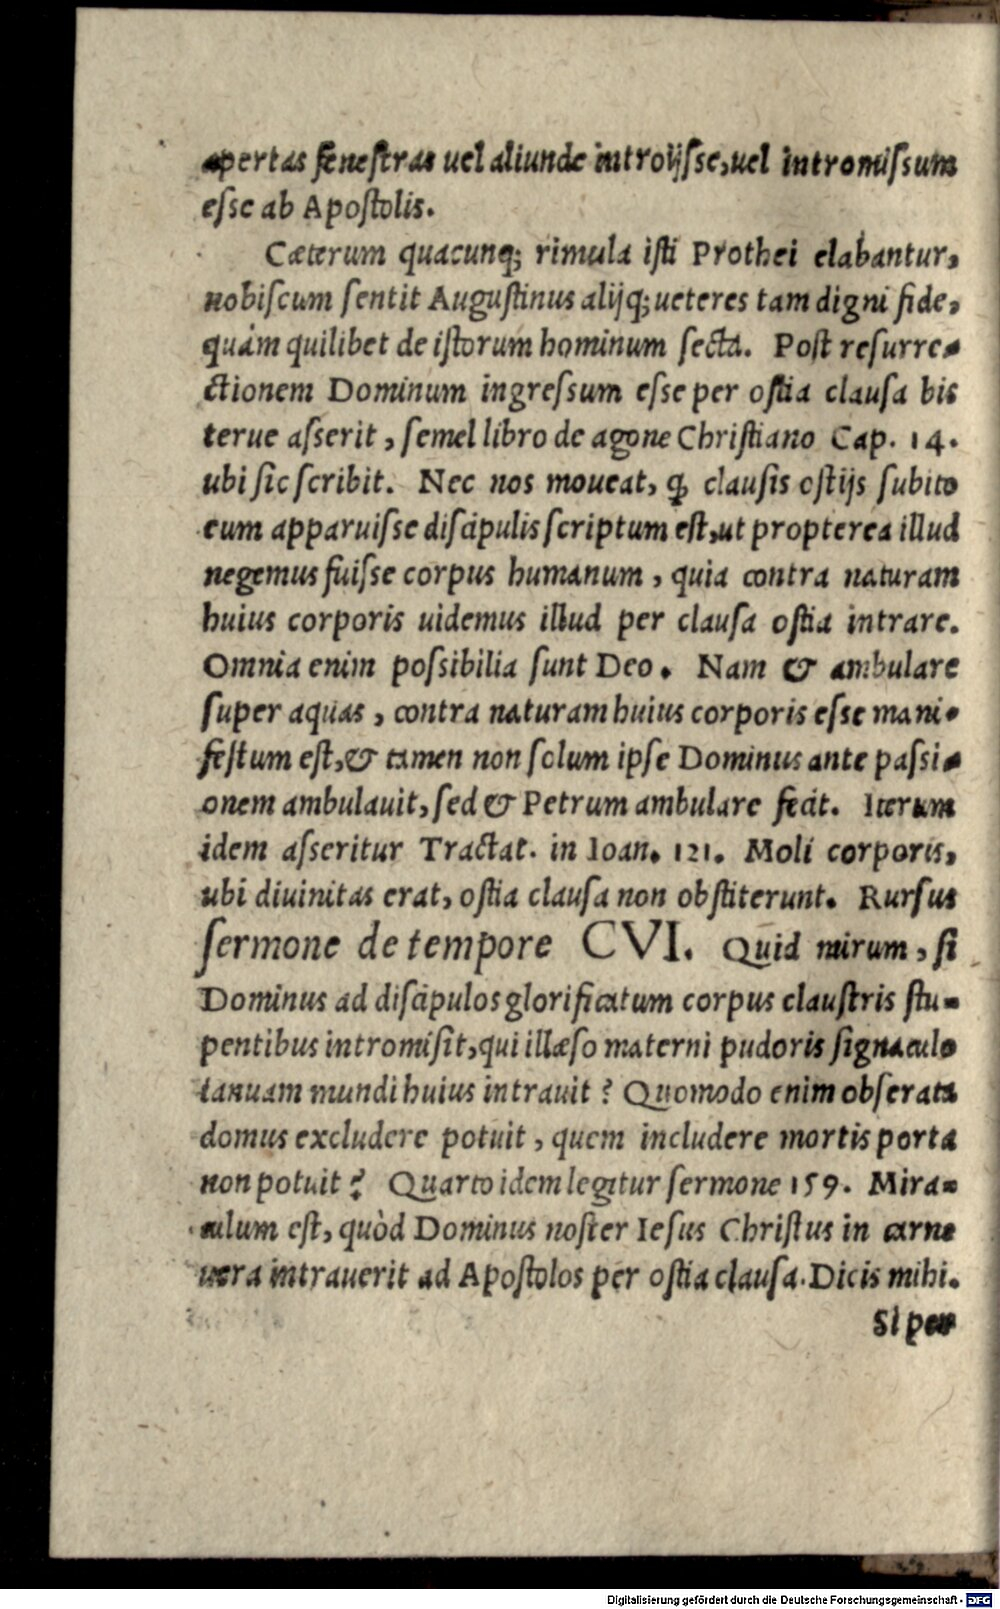 apertas fenestras uel aliunde introijsse, uel intromissum
esse ab Apostolis.
Cæterum quacunq; rimula isti Prothei elabantur,
nobiscum sentit Augustinus alijq; ueteres tam digni fide,
quàm quilibet de istorum hominum secta. Post resurre-
ctionem Dominum ingressum esse per ostia clausa bis
terue asserit, semel libro de agone Christiano Cap. 14.
ubi sic scribit. Nec nos moueat, ꝙ clausis ostijs subito
eum apparuisse discipulis scriptum est, ut propterea illud
negemus fuisse corpus humanum, quia contra naturam
huius corporis uidemus illud per clausa ostia intrare.
Omnia enim possibilia sunt Deo. Nam & ambulare
super aquas, contra naturam huius corporis esse mani-
festum est, & tamen non solum ipse Dominus ante passi-
onem ambulauit, sed & Petrum ambulare fecit. Iterum
idem asseritur Tractat. in Ioan. 121. Moli corporis,
ubi diuinitas erat, ostia clausa non obstiterunt. Rursus
sermone de tempore CVI. Quid mirum, si
Dominus ad discipulos glorificatum corpus claustris stu-
pentibus intromisit, qui illæso materni pudoris signaculo
ianuam mundi huius intrauit? Quomodo enim obserata
domus excludere potuit, quem includere mortis porta
non potuit? Quarto idem legitur sermone 159. Mira-
culum est, quòd Dominus noster Iesus Christus in carne
uera intrauerit ad Apostolos per ostia clausa. Dicis mihi.
Si per
Digitalisierung gefördert durch die Deutsche Forschungsgemeinschaft - DFG